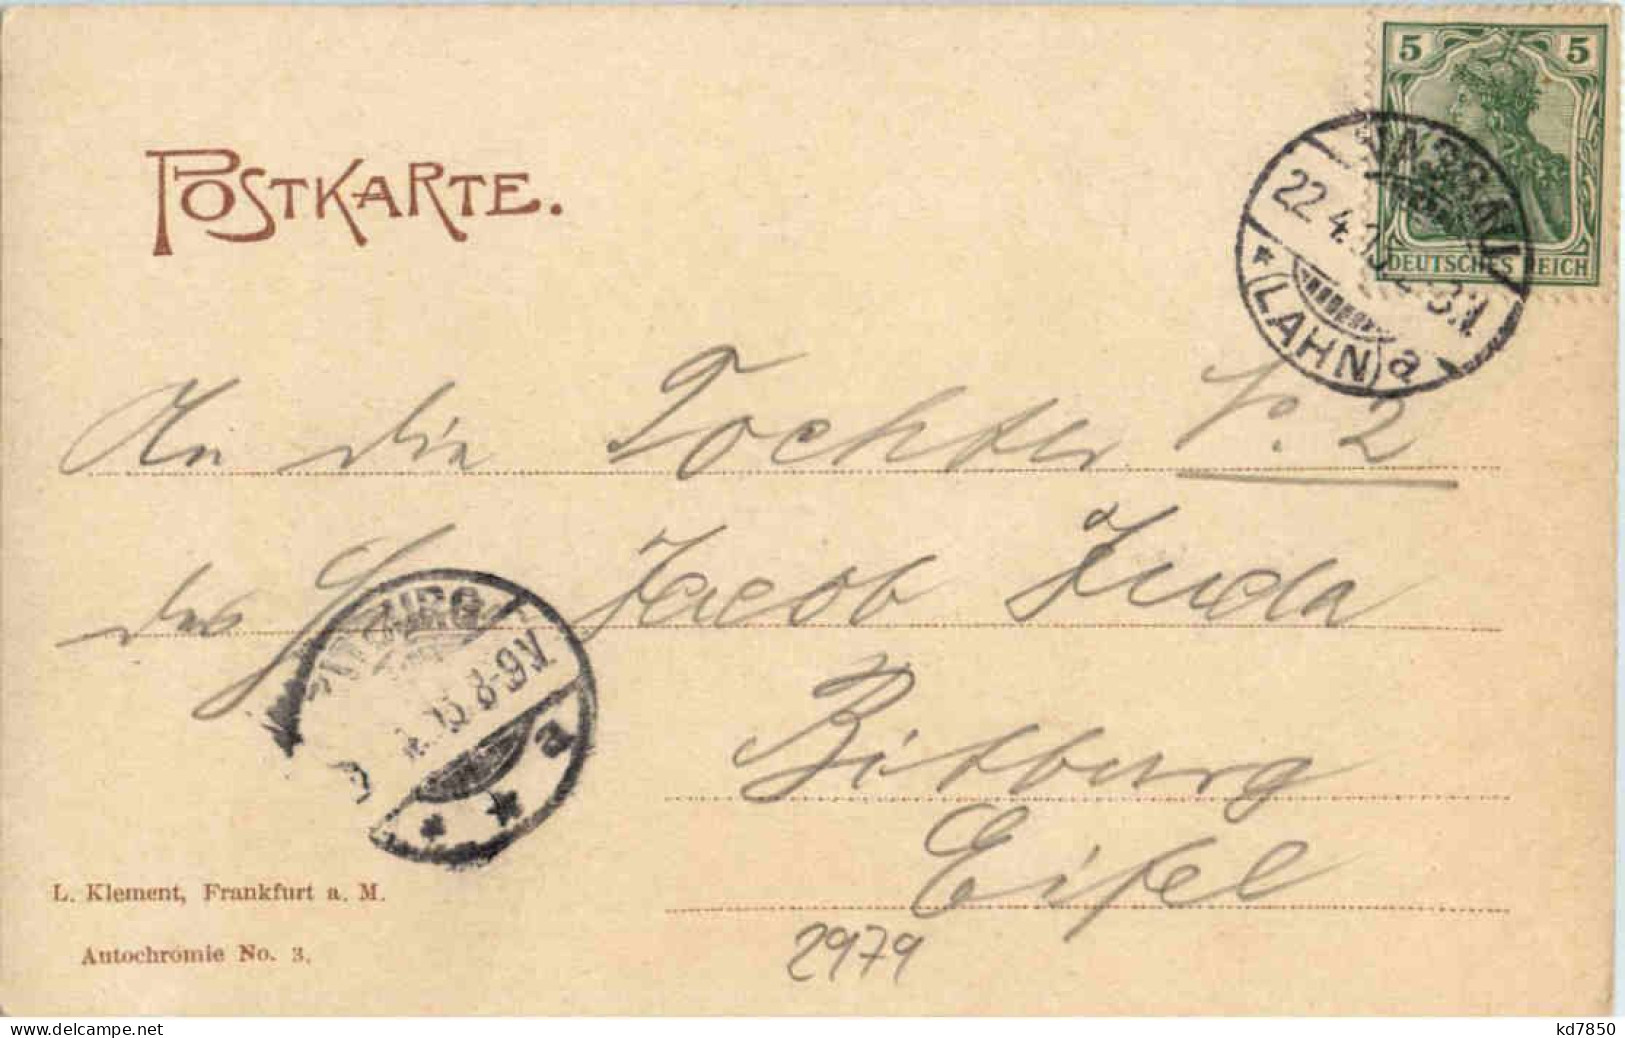 POSTKARTE.
5 5
DEUTSCHES REICH
NASSAU
22.4.
(LAHN) a
An die Tochter N. 2
des H Jacob Juda
BITBURG
8-9V.
a
Bitburg
Eifel
L. Klement, Frankfurt a. M.
Autochromie No. 3.
2979
www.delcampe.net
kd7850